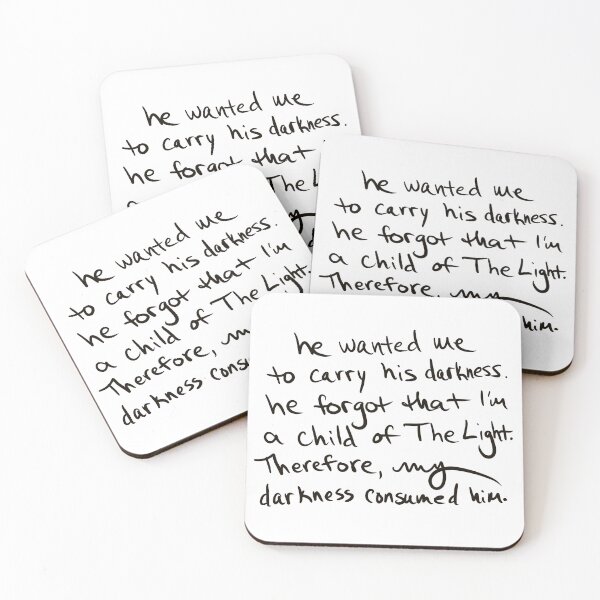 he wanted me
to carry his darkness.
he forgot that
The
he wanted me
to carry his darkness.
he forgot that I'm
a child of The Light.
Therefore, my
him.
he wanted me
to carry his darkness.
he forgot that I'm
a child of The Light.
Therefore,
darkness
he wanted me
to carry his darkness.
he forgot that I'm
a child of The Light.
Therefore, my
darkness consumed him.